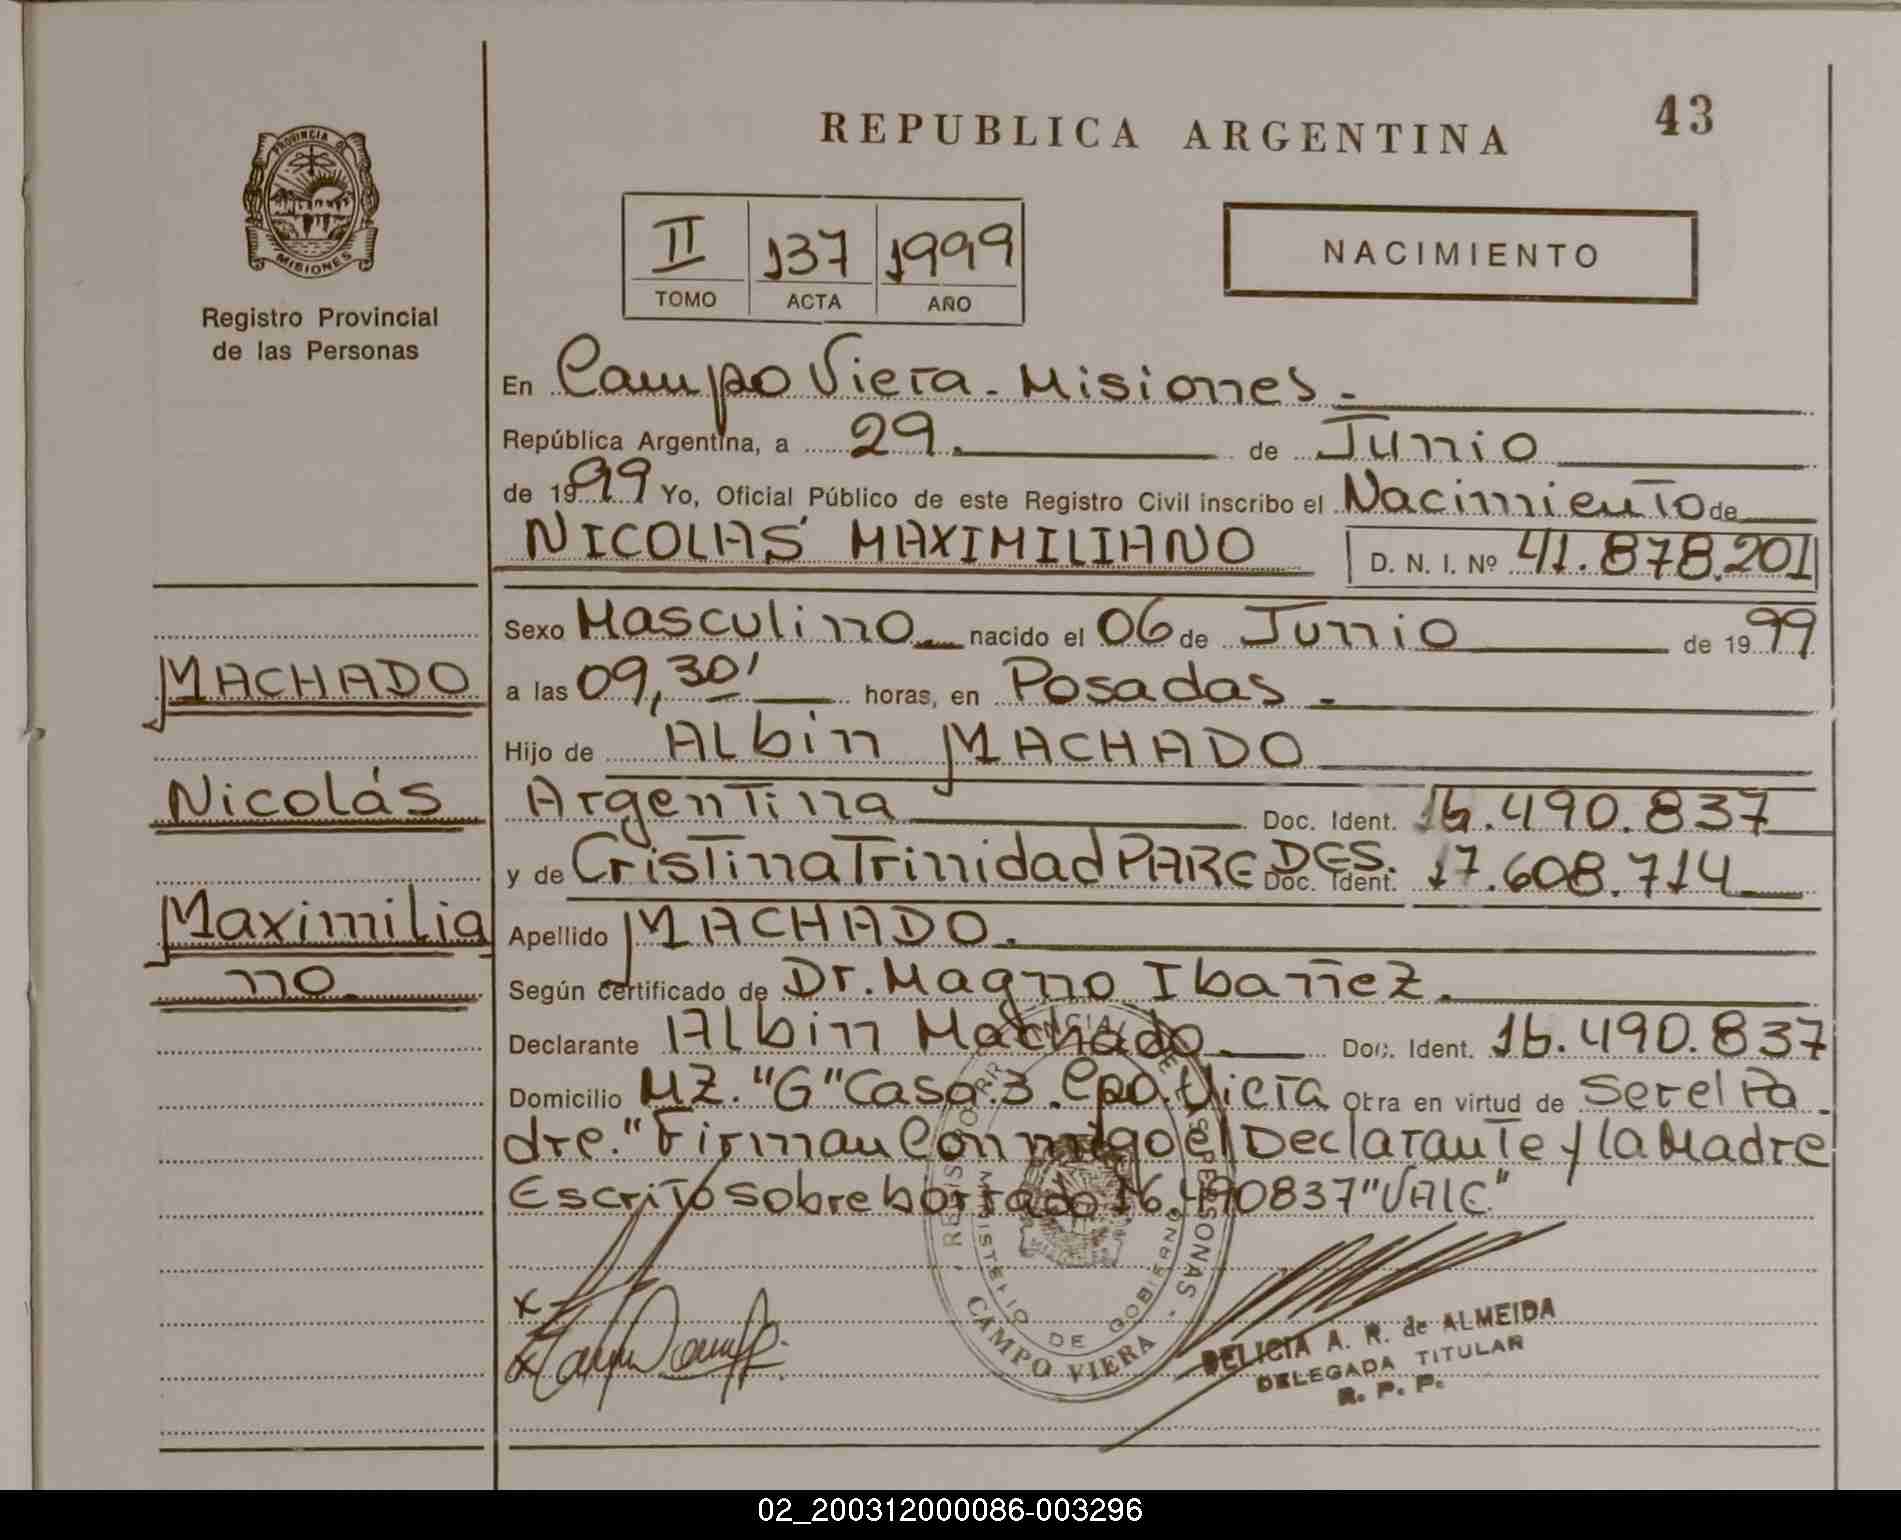 REPUBLICA ARGENTINA
43
PROVINCIA DE
MISIONES
Registro Provincial
de las Personas
II 137 1999
TOMO ACTA AÑO
NACIMIENTO
En Campo Viera - Misiones -
República Argentina, a 29. de Junio
de 1999 Yo, Oficial Público de este Registro Civil inscribo el Nacimiento de
NICOLÁS MAXIMILIANO D. N. I. Nº 41.878.201
Sexo Masculino nacido el 06 de Junio de 1999
a las 09,30' horas, en Posadas -
Hijo de Albin MACHADO
Argentina Doc. Ident. 16.490.837
y de Cristina Trinidad PAREDES. Doc. Ident. 17.608.714
Apellido MACHADO.
Según certificado de Dr. Magno Ibañez.
Declarante Albin Machado Doc. Ident. 16.490.837
Domicilio MZ. "G" Casa 3. Cpo. Viera Otra en virtud de Ser el Pa-
dre." Firman Conmigo el Declarante y la Madre
Escrito sobre borrado 16.490837 "VALE"
MACHADO
Nicolás
Maximilia
no.
REGISTRO PROVINCIAL DE LAS PERSONAS -
MINISTERIO DE GOBIERNO
CAMPO VIERA
DELICIA A. R. de ALMEIDA
DELEGADA TITULAR
R. P. P.
02_200312000086-003296